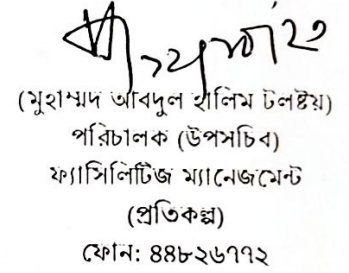 (মুহাম্মদ আবদুল হালিম টলষ্টয়)
পরিচালক (উপসচিব)
ফ্যাসিলিটিজ ম্যানেজমেন্ট
(প্রতিকল্প)
ফোন: ৪৪৮২৬৭৭২